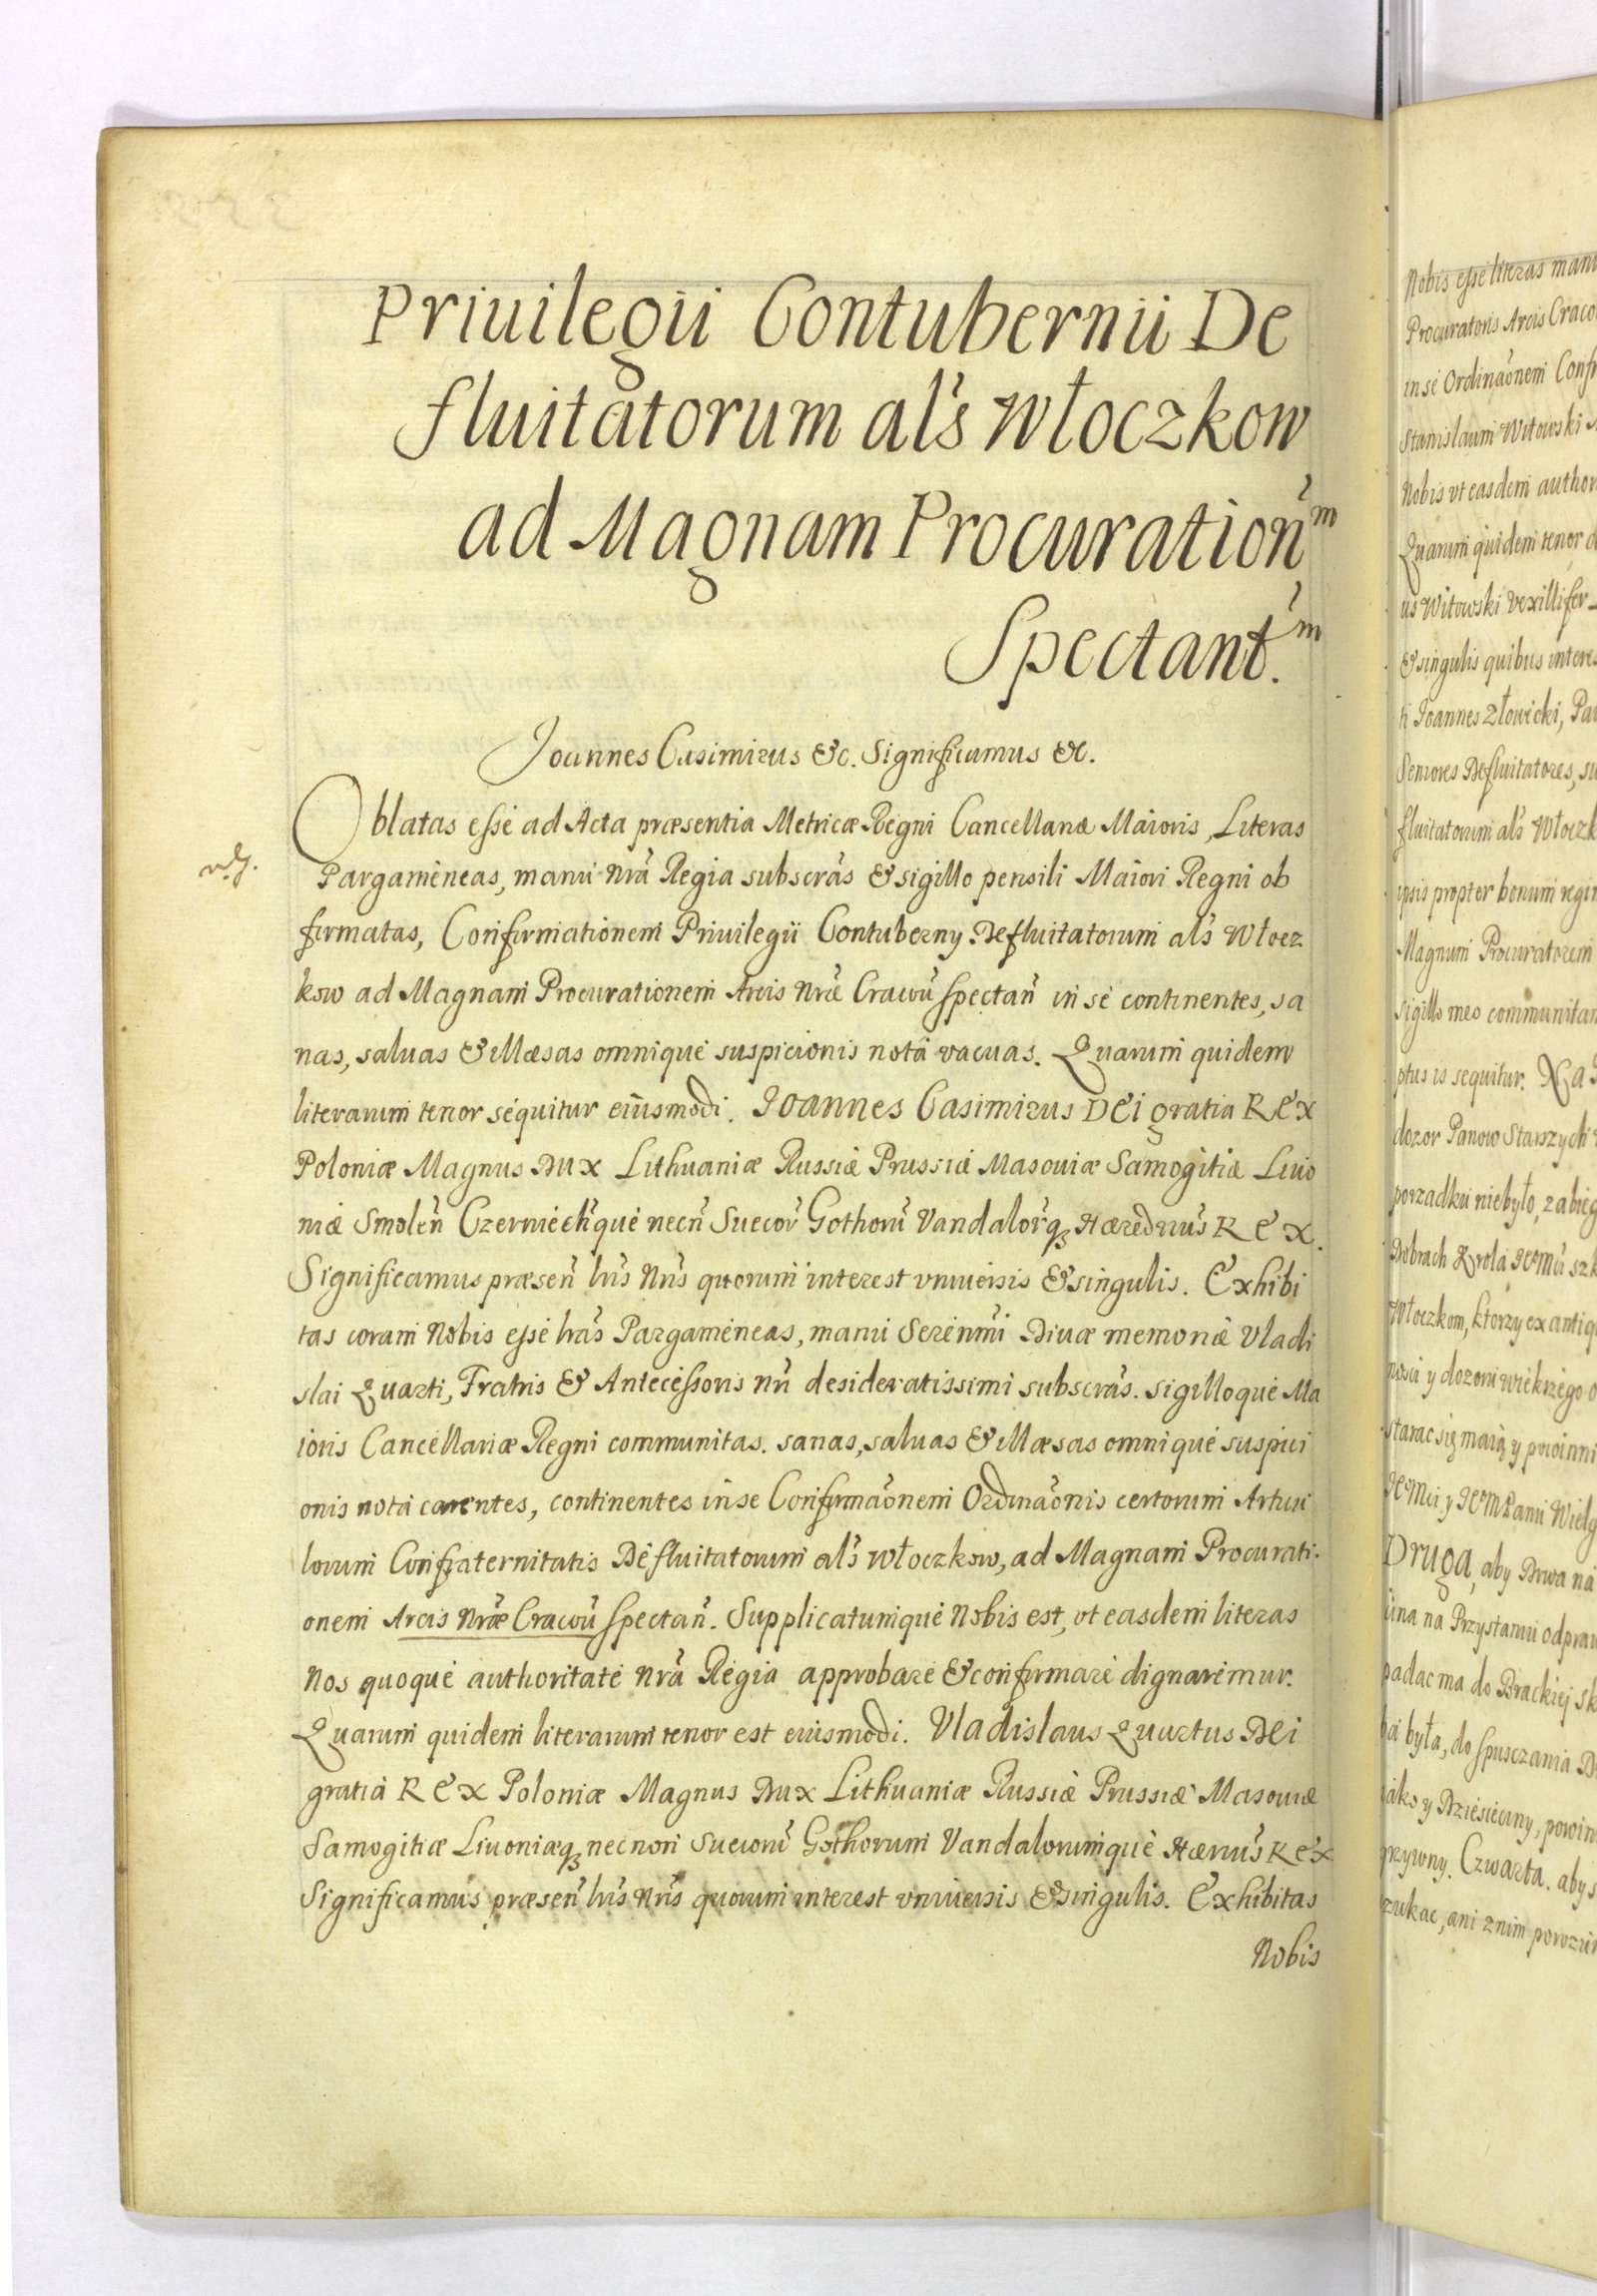 Priuilegii Contubernii De
fluitatorum als Włoczkow
ad Magnam Procuration̄m
Spectant.m
Joannes Casimirus &c. Significamus &c.
Oblatas esse ad Acta præsentia Metricæ Regni Cancellariæ Maioris, Literas
Pargameneas, manu nrā Regia subscrās & sigillo pensili Maiori Regni ob
firmatas, Confirmationem Priuilegii Contuberny Defluitatorum als Włocz
kow ad Magnam Procurationem Arcis nræ Cracou̅ spectan̅ in se continentes, sa
nas, saluas & illæsas omnique suspicionis notâ vacuas. Quarum quidem
literarum tenor sequitur eiusmodi. Joannes Casimirus DEi gratia REX
Poloniæ Magnus Dux Lithuaniæ Russiæ Prussiæ Masouiæ Samogitiæ Liuo
niæ Smolen̅ Czerniech̅que necn̅ Suecor̅ Gothoru̅ Vandalor̅q; Hæredrius REX.
Significamus præsen̅ lrīs nrīs quorum interest vniuersis & singulis. Exhibi
tas coram Nobis esse lrās Pargameneas, manu Serenm̄i Diuæ memoriæ Vladi
slai Quarti, Fratris & Antecessoris nr̄i desideratissimi subscrās. sigilloque Ma
ioris Cancellariæ Regni communitas. sanas, saluas & illæsas omnique suspici
onis notâ carentes, continentes in se Confirmāonem Ordināonis certorum Articu
lorum Confraternitatis Defluitatorum als Włoczkow, ad Magnam Procurati.
onem Arcis nræ Cracou̅ spectan̅. Supplicatumque Nobis est, vt easdem literas
Nos quoque authoritate nrā Regia approbare & confirmare dignaremur.
Quarum quidem literarum tenor est eiusmodi. Vladislaus Quartus DEi
gratia REX Poloniæ Magnus Dux Lithuaniæ Russiæ Prussiæ Masouiæ
Samogitiæ Liuoniæq; necnon Suecoru̅ Gothorum Vandalorumque Hærius REX
Significamus præsen̅ lrīs nrīs quorum interest vniuersis & singulis. Exhibitas
Nobis
Nobis esse literas manu
Procuratoris Arcis Craco
in se Ordināonem Confr
Stanislaum Witowski
Nobis vt easdem author
Quarum quidem tenor
us Witowski Vexillifer
& singulis quibus interes
ti Joannes Złowicki, Pa
Seniores Defluitatores, su
fluitatorum als Włoczk
ipsis propter bonum regi
Magnum Procuratorem
sigillo meo communitam
ptus is sequitur. Na
dozor Panow Starszych
porzadku niebyło, zabieg
Dobrach Krola JeoMci szk
Włoczkom, ktorzy ex antiq
nosci y dozoru wiekszego
starac się maią y powinni
JeoMci y JeoMPanu Wielg
Druga, aby Drwa na
una na Przystaniu odpraw
padac ma do Brackiej sk
ba była, do spusczania
iako y Dziesieciny, powin
grzywny. Czwarta. aby s
zukac, ani znim porozu